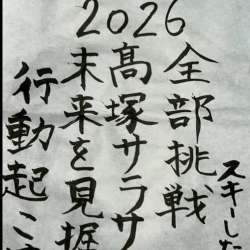 2026
スキーした
全部挑戦
髙塚サラサ
末来を見据
行動起こ